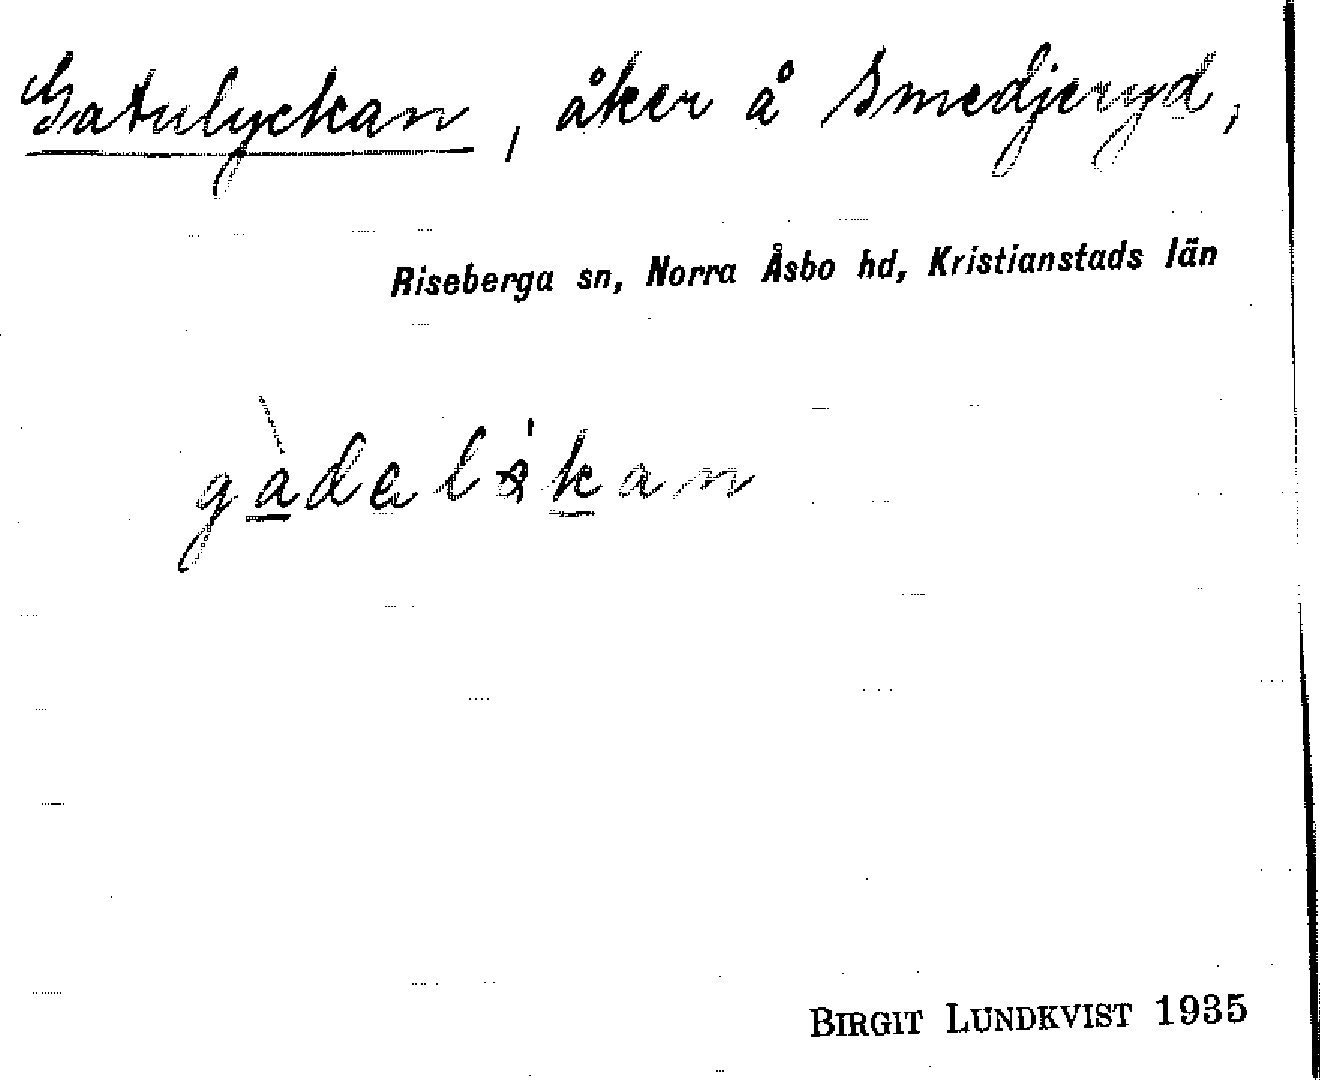 Gatulyckan, åker å Smedjeryd,
Riseberga sn, Norra Åsbo hd, Kristianstads län
BIRGIT LUNDKVIST 1935